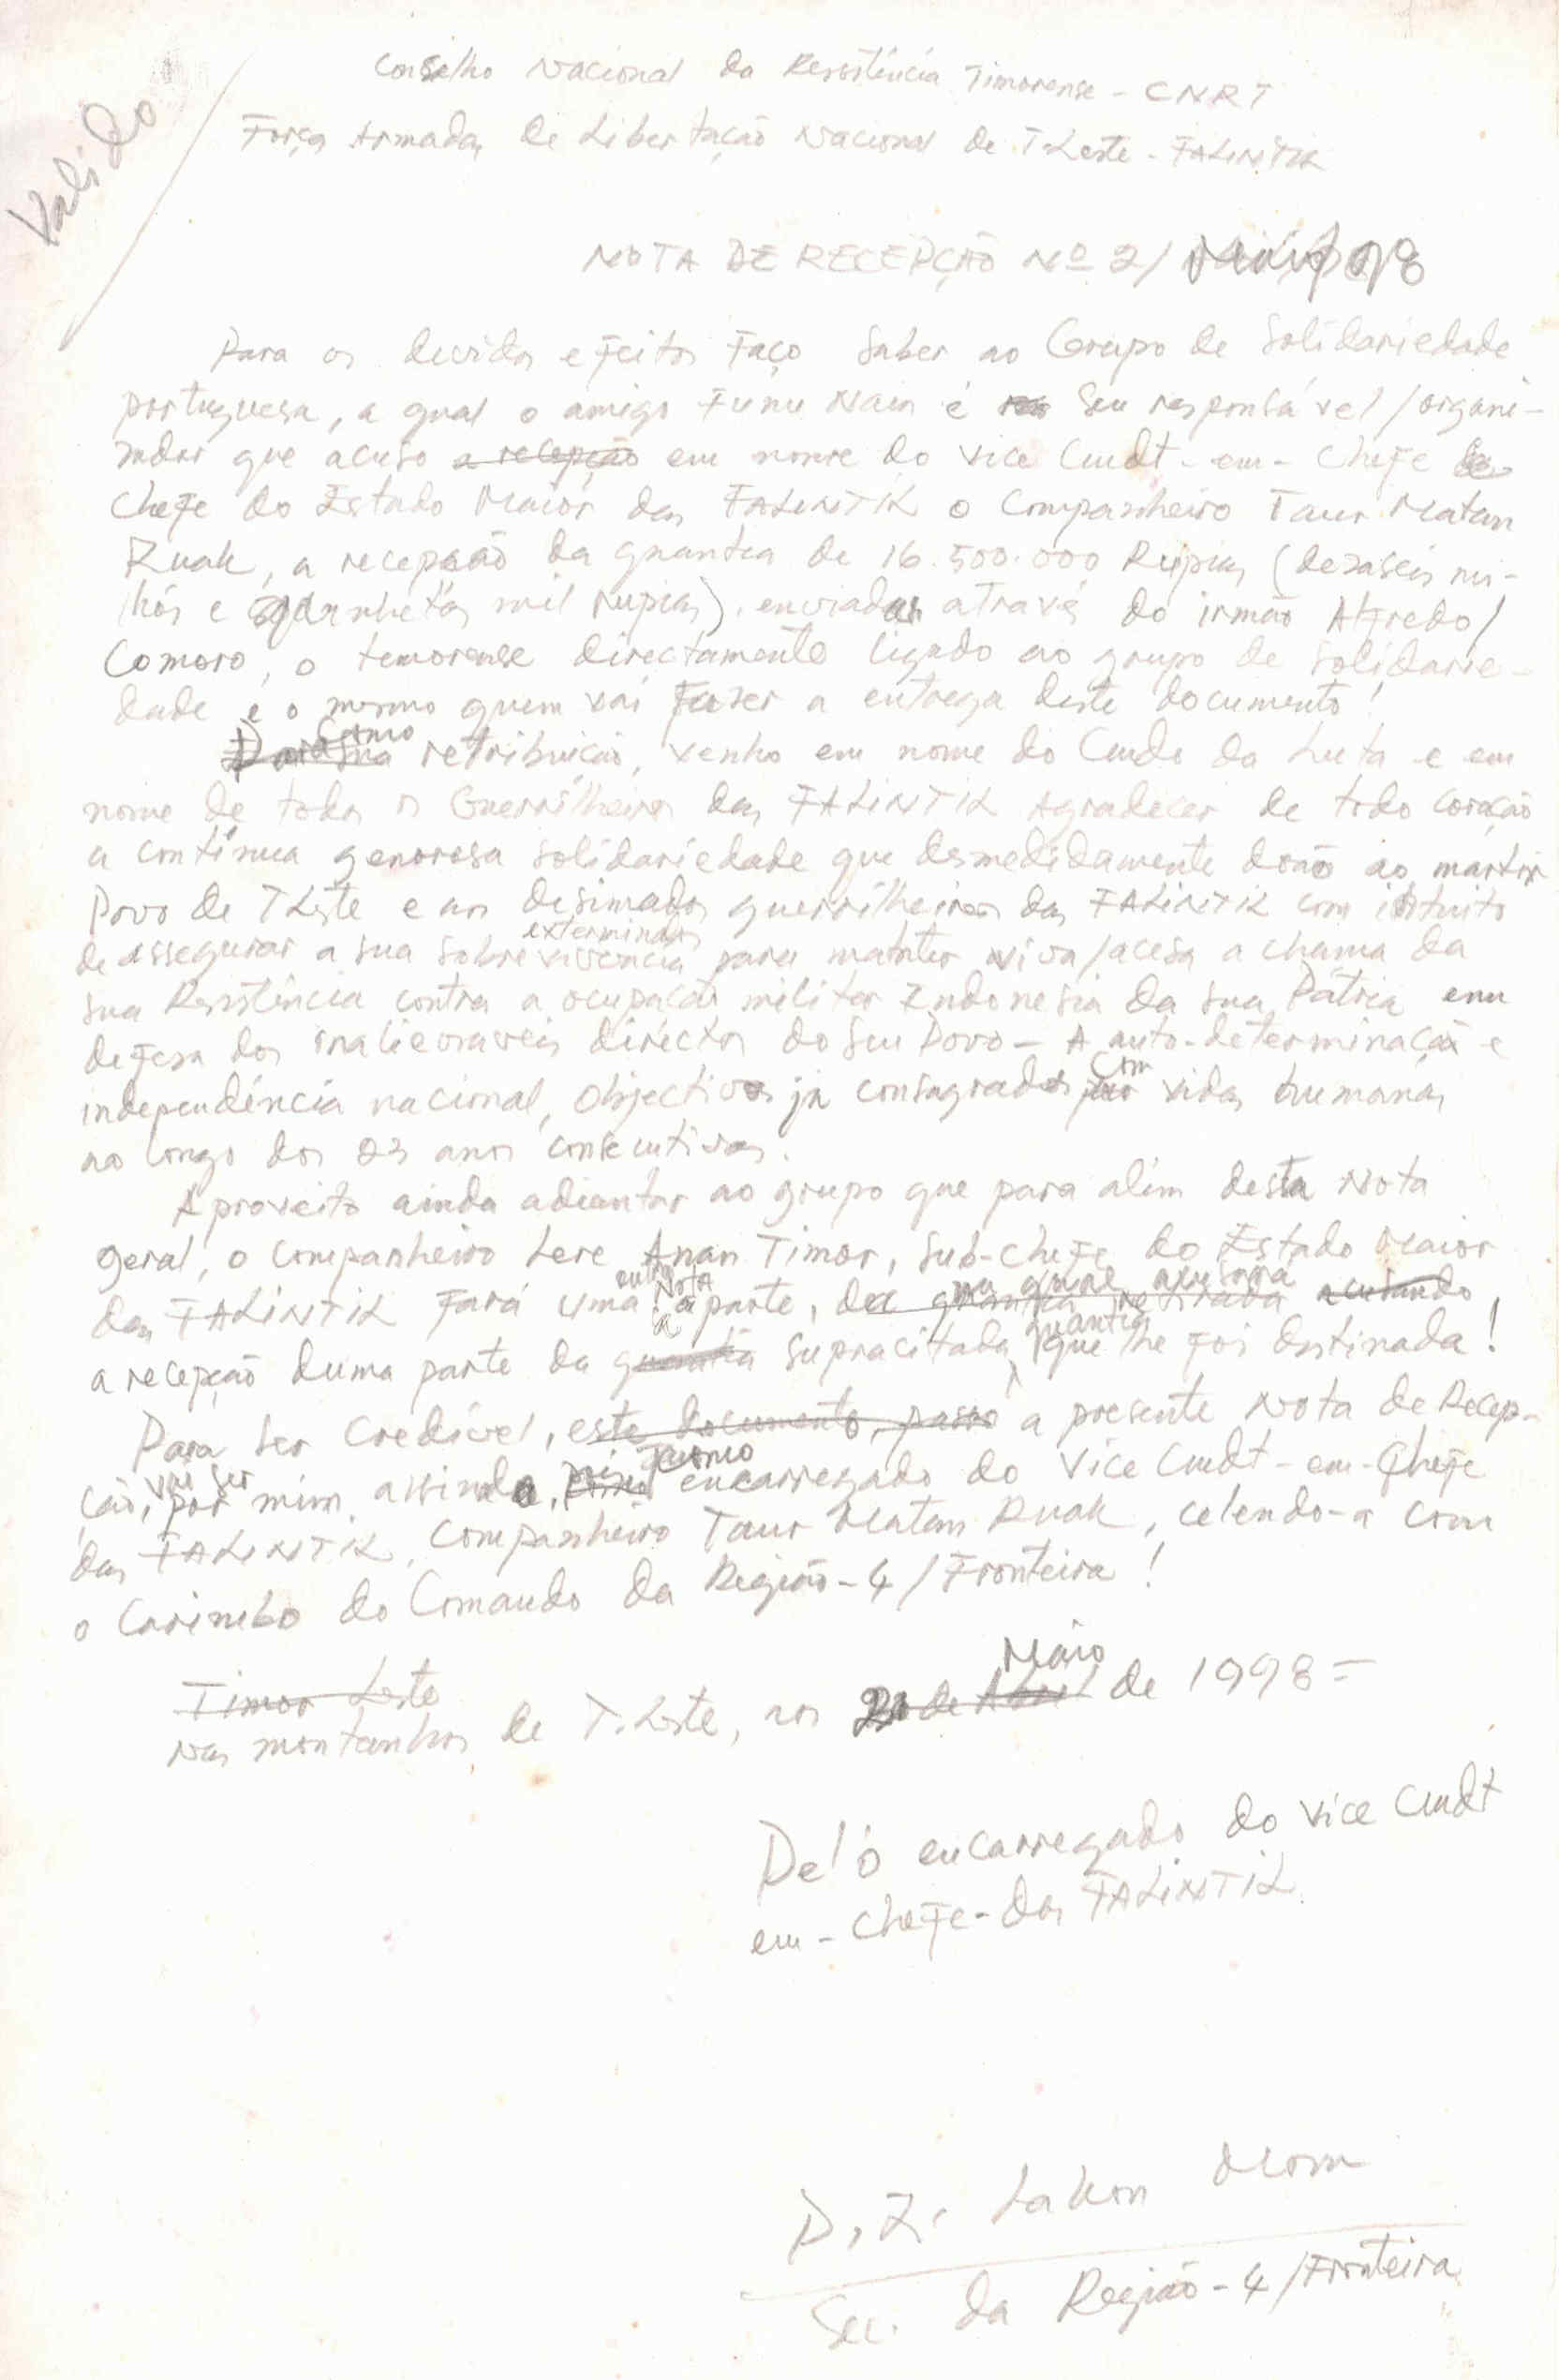 Valido
Conselho Nacional da Resistência Timorense - CNRT
Força Armadas de Libertação Nacional de T.Leste - FALINTIL
NOTA DE RECEPÇÃO Nº 2/ 98
Para os devidos efeitos Faço saber ao Grupo de Solidariedade
portuguesa, a qual o amigo Funu Nain é seu responsável/organi-
zador que acuso a recepção em nome do Vice Cmdt-em-Chefe
Chefe do Estado Maior das FALINTIL o Companheiro Taur Matan
Ruak, a recepção da quantia de 16.500.000 Rupias (dezaseis mi-
lhós e mil rupias), enviadas através do irmão Alfredo/
Comoro, o temorense directamente ligado ao grupo de solidarie-
dade e o mesmo quem vai fazer a entrega deste documento!
Como retribuição, venho em nome do Cmdo da Luta e em
nome de todos os Guerrilheiros das FALINTIL Agradecer de todo coração
a contínua generosa solidariedade que desmedidamente doão ao martir
Povo de T.Leste e aos desimados guerrilheiros das FALINTIL com intuito
exterminados
de assegurar a sua sobrevivencia para manter viva/acesa a chama da
sua Resistência contra a ocupação militar Indonesia da sua Pátria em
defesa dos inalienaveis directos do seu Povo - A auto-determinação e
independência nacional, objectivos já consagrados com vidas humanas
ao longo dos 23 anos consecutivos.
Aproveito ainda adiantar ao grupo que para além desta Nota
geral, o Companheiro Lere Anan Timor, Sub-Chefe do Estado Maior
outra Nota na qual acusará
das FALINTIL Fará uma à parte, da quantia retirada acusando
quantia
a recepção duma parte da quantia supracitada que lhe foi destinada!
Para ser Credível, este documento, passo a presente Nota de Recep-
vai ser como
ção, por mim assinada, encarregado do Vice Cmdt-em-Chefe
das FALINTIL, Companheiro Taur Matan Ruak, celendo-a com
o Carimbo do Comando da Região-4/Fronteira!
Timor Leste
Maio
Nas montanhas de T.Leste, aos 20 de Abril de 1998=
Pel'o encarregado do Vice Cmdt
em-Chefe-das FALINTIL
P.Z. Lakon Mom
Sec. da Região-4/Fronteira